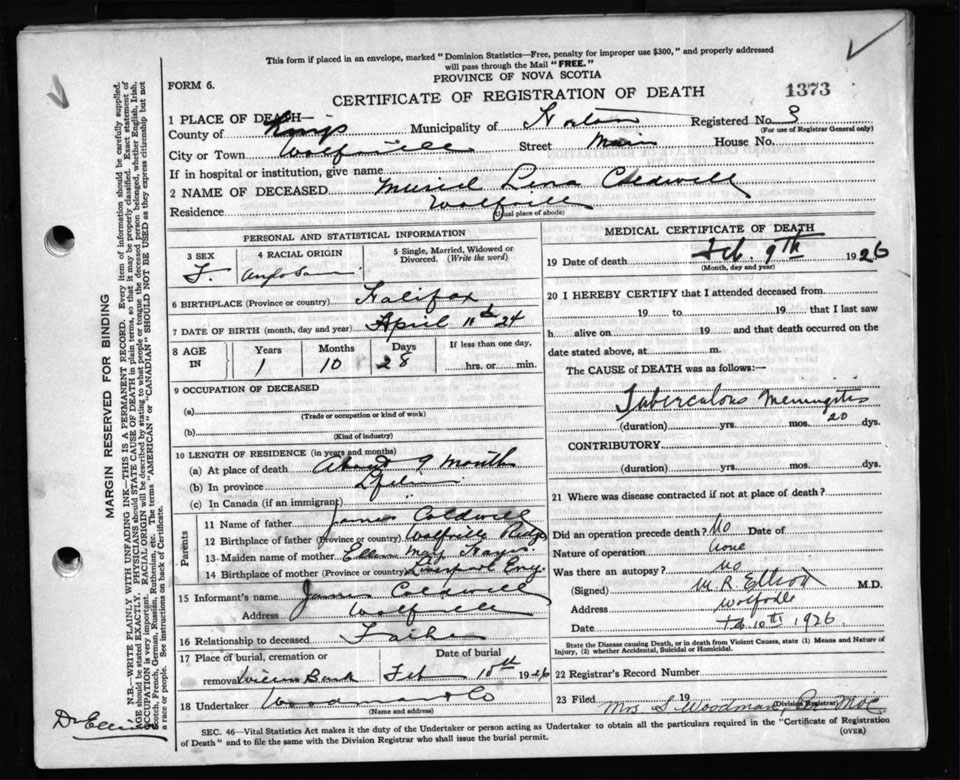 This form if placed in an envelope, marked "Dominion Statistics—Free, penalty for improper use $300," and properly addressed
will pass through the Mail "FREE."
PROVINCE OF NOVA SCOTIA
FORM 6.
1373
CERTIFICATE OF REGISTRATION OF DEATH
1 PLACE OF DEATH—
County of Kings Municipality of Horton Registered No. 3
(For use of Registrar General only)
City or Town Wolfville Street Main House No.
If in hospital or institution, give name
2 NAME OF DECEASED Muriel Lena Coldwell
Residence Wolfville
(Usual place of abode)
PERSONAL AND STATISTICAL INFORMATION
3 SEX 4 RACIAL ORIGIN 5 Single, Married, Widowed or
Divorced. (Write the word)
F.
6 BIRTHPLACE (Province or country) Halifax
7 DATE OF BIRTH (month, day and year) April 11th 24
8 AGE IN Years Months Days If less than one day,
1 10 28 hrs. or min.
9 OCCUPATION OF DECEASED
(a)
(Trade or occupation or kind of work)
(b)
(Kind of industry)
10 LENGTH OF RESIDENCE (in years and months)
(a) At place of death About 9 months
(b) In province
(c) In Canada (if an immigrant)
Parents
11 Name of father James Coldwell
12 Birthplace of father (Province or country) Wolfville Ridge
13 Maiden name of mother Ellen May
14 Birthplace of mother (Province or country) Liverpool Eng.
15 Informant's name James Coldwell
Address Wolfville
16 Relationship to deceased Father
17 Place of burial, cremation or Date of burial
removal Willow Bank Feb 10th 1926
18 Undertaker Woodman & Co
(Name and address)
MEDICAL CERTIFICATE OF DEATH
19 Date of death Feb. 9th 1926
(Month, day and year)
20 I HEREBY CERTIFY that I attended deceased from
19 to 19 that I last saw
h alive on 19 and that death occurred on the
date stated above, at m.
The CAUSE of DEATH was as follows:—
Tuberculous Meningitis
(duration) yrs. mos. 20 dys.
CONTRIBUTORY
(duration) yrs. mos. dys.
21 Where was disease contracted if not at place of death?
Did an operation precede death? No Date of
Nature of operation none
Was there an autopsy? no
(Signed) M. R. Elliott M.D.
Address Wolfville
Date Feb. 10th 1926
State the Disease causing Death, or in death from Violent Causes, state (1) Means and Nature of
Injury, (2) whether Accidental, Suicidal or Homicidal.
22 Registrar's Record Number
23 Filed 19
Mrs S. Woodman
(Division Registrar)
SEC. 46—Vital Statistics Act makes it the duty of the Undertaker or person acting as Undertaker to obtain all the particulars required in the "Certificate of Registration
of Death" and to file the same with the Division Registrar who shall issue the burial permit.
(OVER)
MARGIN RESERVED FOR BINDING
N.B.—WRITE PLAINLY WITH UNFADING INK—THIS IS A PERMANENT RECORD. Every item of information should be carefully supplied.
AGE should be stated EXACTLY. PHYSICIANS should STATE CAUSE OF DEATH in plain terms, so that it may be properly classified. Exact statement of
OCCUPATION is very important. RACIAL ORIGIN will be described by stating to what people or tongue the deceased person belonged, whether English, Irish,
Scotch, French, German, Russian, Ruthenian, etc. The terms "AMERICAN" or "CANADIAN" SHOULD NOT BE USED as they express citizenship but not
a race or people. See instructions on back of Certificate.
Dr Elliott